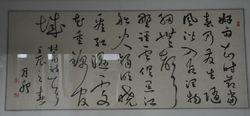 好雨知時節當
春乃發生隨
風潛入夜潤物
細無聲野
徑雲俱黑江
船火獨明曉
看紅濕處
花重錦官
城